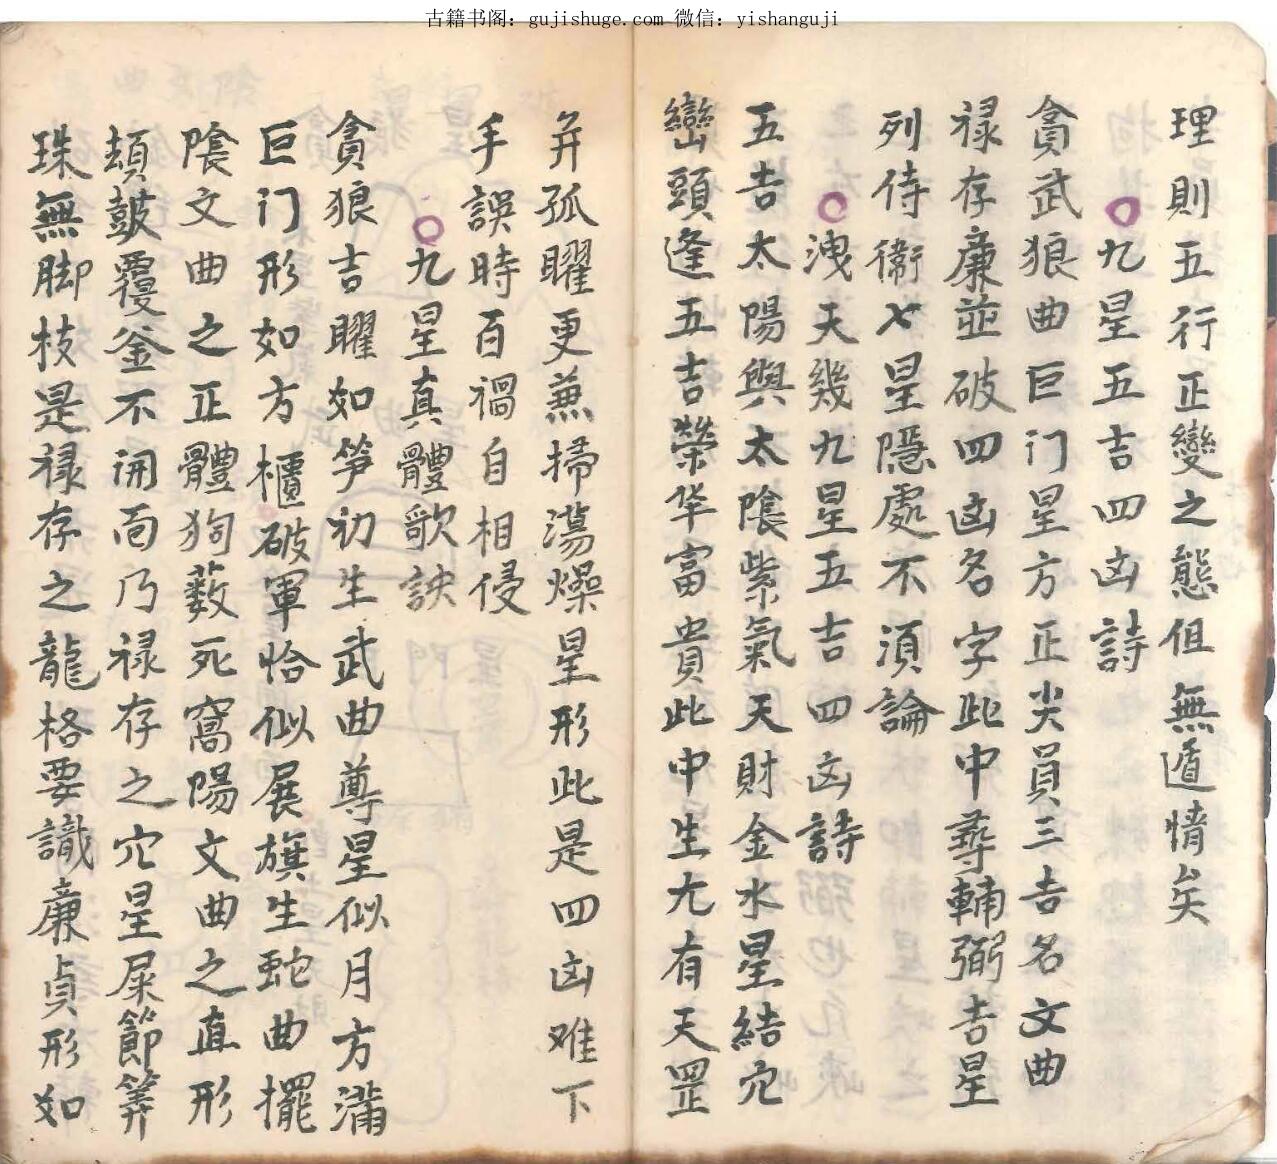 古籍书阁：gujishuge.com 微信：yishanguji
理則五行正變之態但無遁情矣
九星五吉四凶詩
貪武狼曲巨门星方正尖員三吉名文曲
禄存廉並破四凶名字此中尋輔弼吉星
列侍衞七星隱處不須論
洩天幾九星五吉四凶詩
五吉太陽與太陰紫氣天財金水星結穴
巒頭逢五吉榮华富貴此中生尢有天罡
并孤曜更兼掃蕩燥星形此是四凶难下
手誤時百禍自相侵
九星真體歌訣
貪狼吉曜如笋初生武曲尊星似月方滿
巨门形如方櫃破軍恰似展旗生蛇曲擺
陰文曲之正體狗薮死窩陽文曲之直形
頓皷覆釡不闬面乃禄存之穴星屎節筭
珠無脚枝是禄存之龍格要識廉貞形如